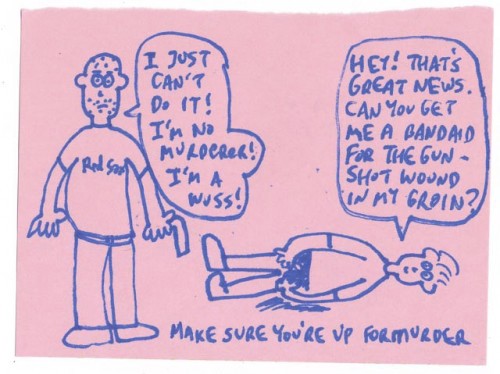 I JUST
CAN'T
DO IT!
I'M NO
MURDERER!
I'M A
WUSS!
HEY! THAT'S
GREAT NEWS.
CAN YOU GET
ME A BANDAID
FOR THE GUN-
SHOT WOUND
IN MY GROIN?
Red Sox
MAKE SURE YOU'RE UP FOR MURDER